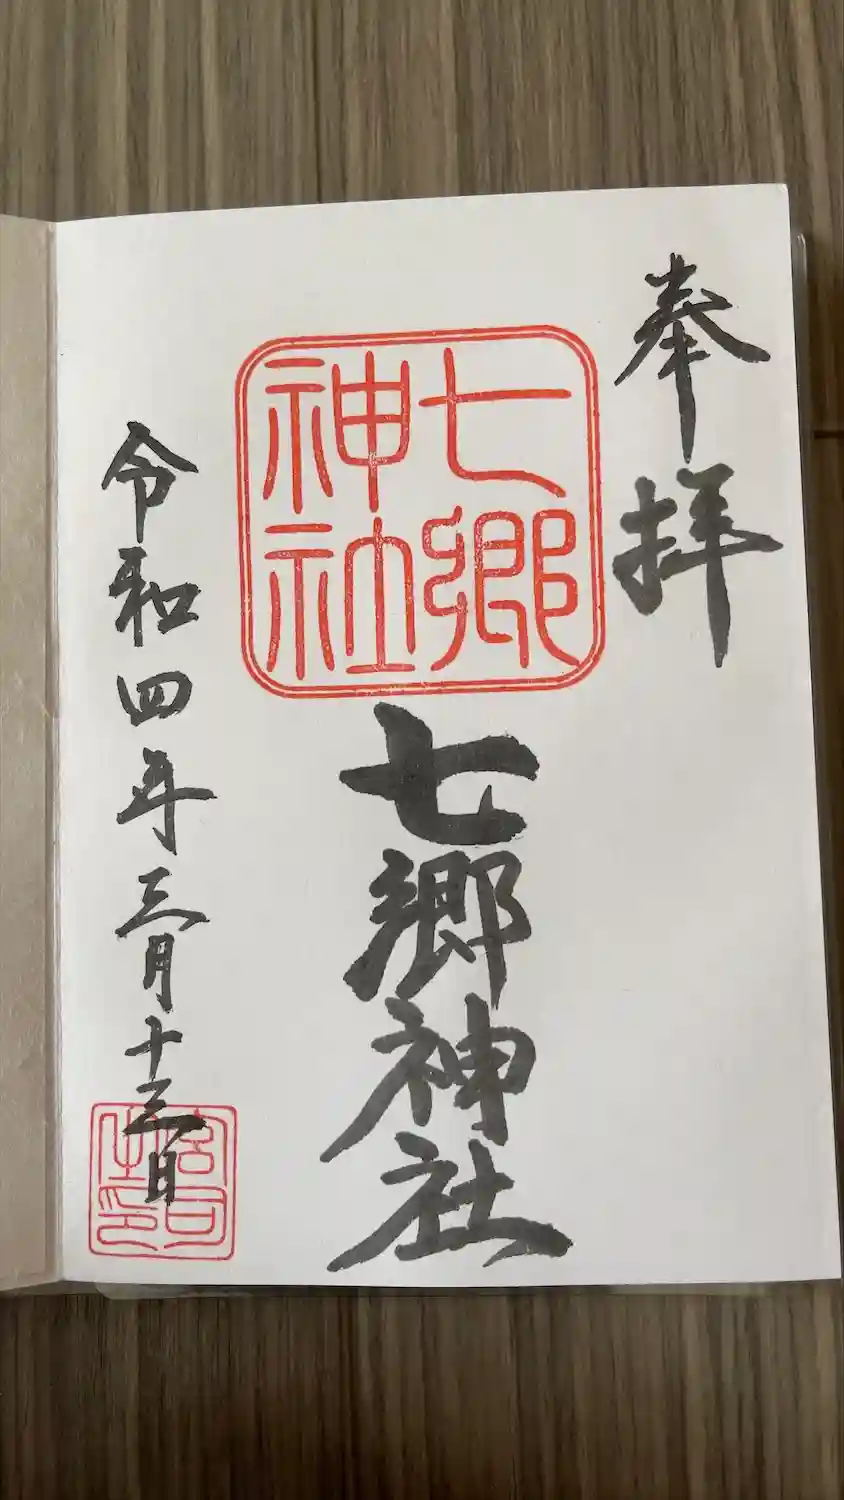 奉拝
七郷
神社
七郷神社
令和四年三月十三日
宮司
之印